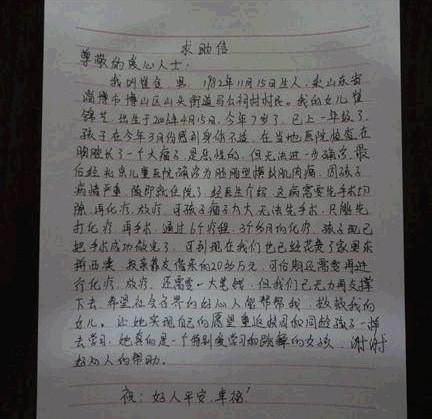 求助信
尊敬的爱心人士:
我叫崔 男,1982年11月15日生人,系山东省
淄博市博山区山头街道 村村民。我的女儿崔
锦 ,出生于2004年4月15日,今年7岁了,已上一年级了,
孩子在今年3月份感到身体不适,在当地医院检查在
胸腔长了一个大瘤子,是恶性的,但无法进一步确诊,最
后经北京儿童医院确诊为胚胎型横纹肌肉瘤,因孩子
病情严重,随即就住院了,经医生介绍,这病需要先手术切
除,再化疗、放疗,可孩子瘤子太大,无法先手术,只能先
打化疗,再手术,通过6个疗程,3个多月的化疗,孩子现已
把手术成功做完了,可到现在我们也已经花费了家里东
拼西凑,找亲戚友借来的20多万元,可后期还需要再进
行化疗、放疗,还需要一大笔钱,但我们已无力再支撑
下去,希望社会各界的好心人能帮帮我,救救我的
女儿。让她实现自己的愿望重返校园和同龄孩子一样
去学习,她真的是一个特别爱学习和 的女孩,谢谢
好心人的帮助。
祝:好人平安,幸福!